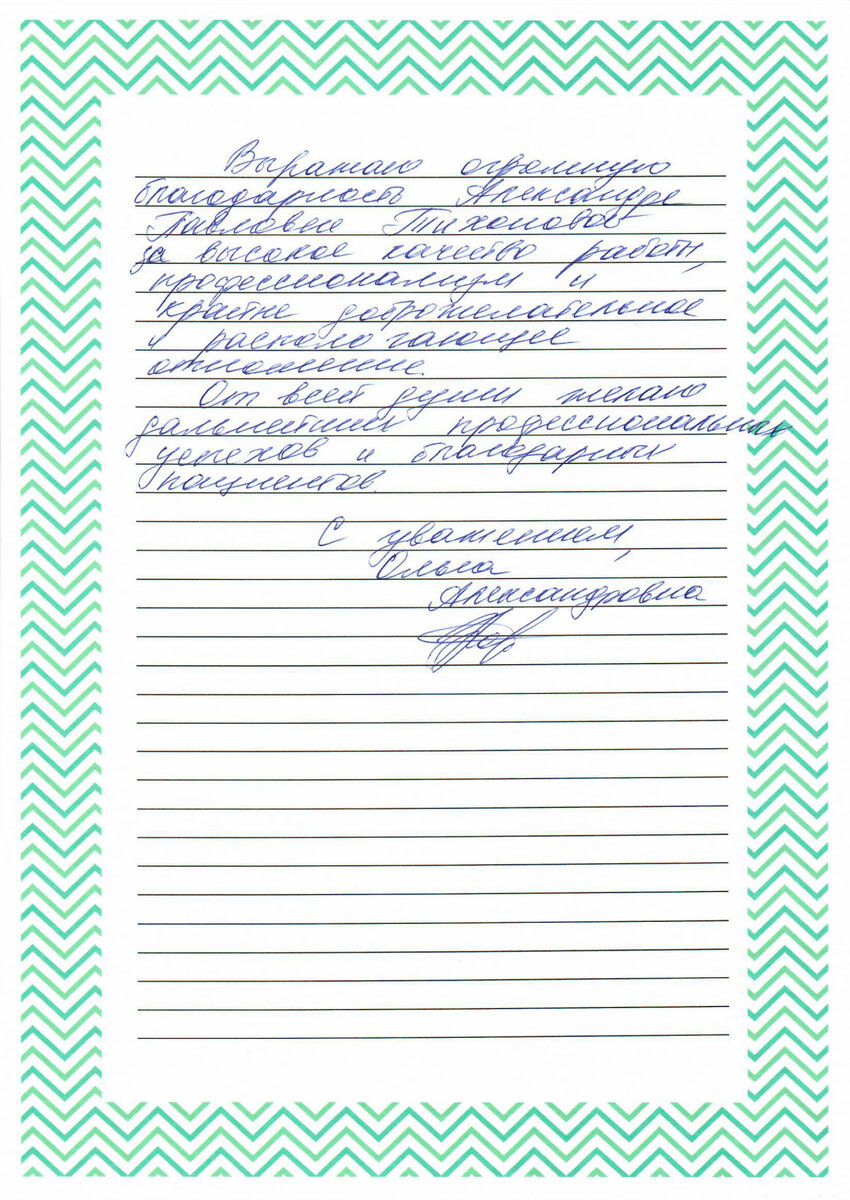 Выражаю огромную
благодарность Александре
Павловне Тихоновой
за высокое качество работы,
профессионализм и
крайне доброжелательное
и располагающее
отношение.
От всей души желаю
дальнейших профессиональных
успехов и благодарных
пациентов.
С уважением,
Ольга
Александровна